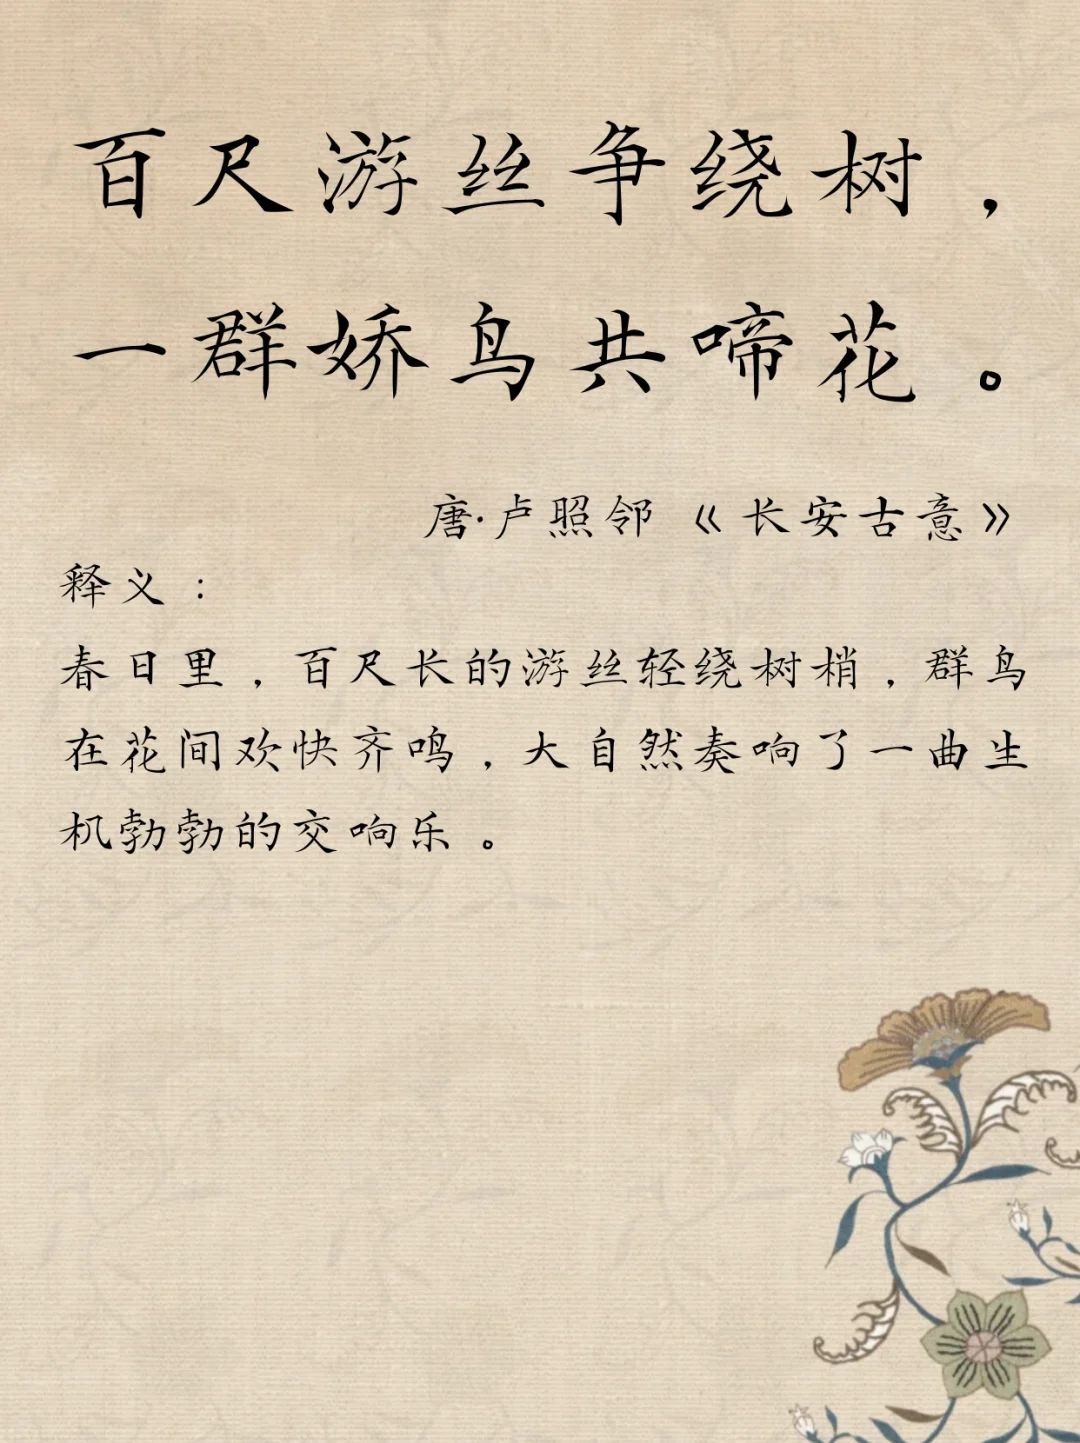 百尺游丝争绕树，
一群娇鸟共啼花。
唐·卢照邻《长安古意》
释义：
春日里，百尺长的游丝轻绕树梢，群鸟
在花间欢快齐鸣，大自然奏响了一曲生
机勃勃的交响乐。